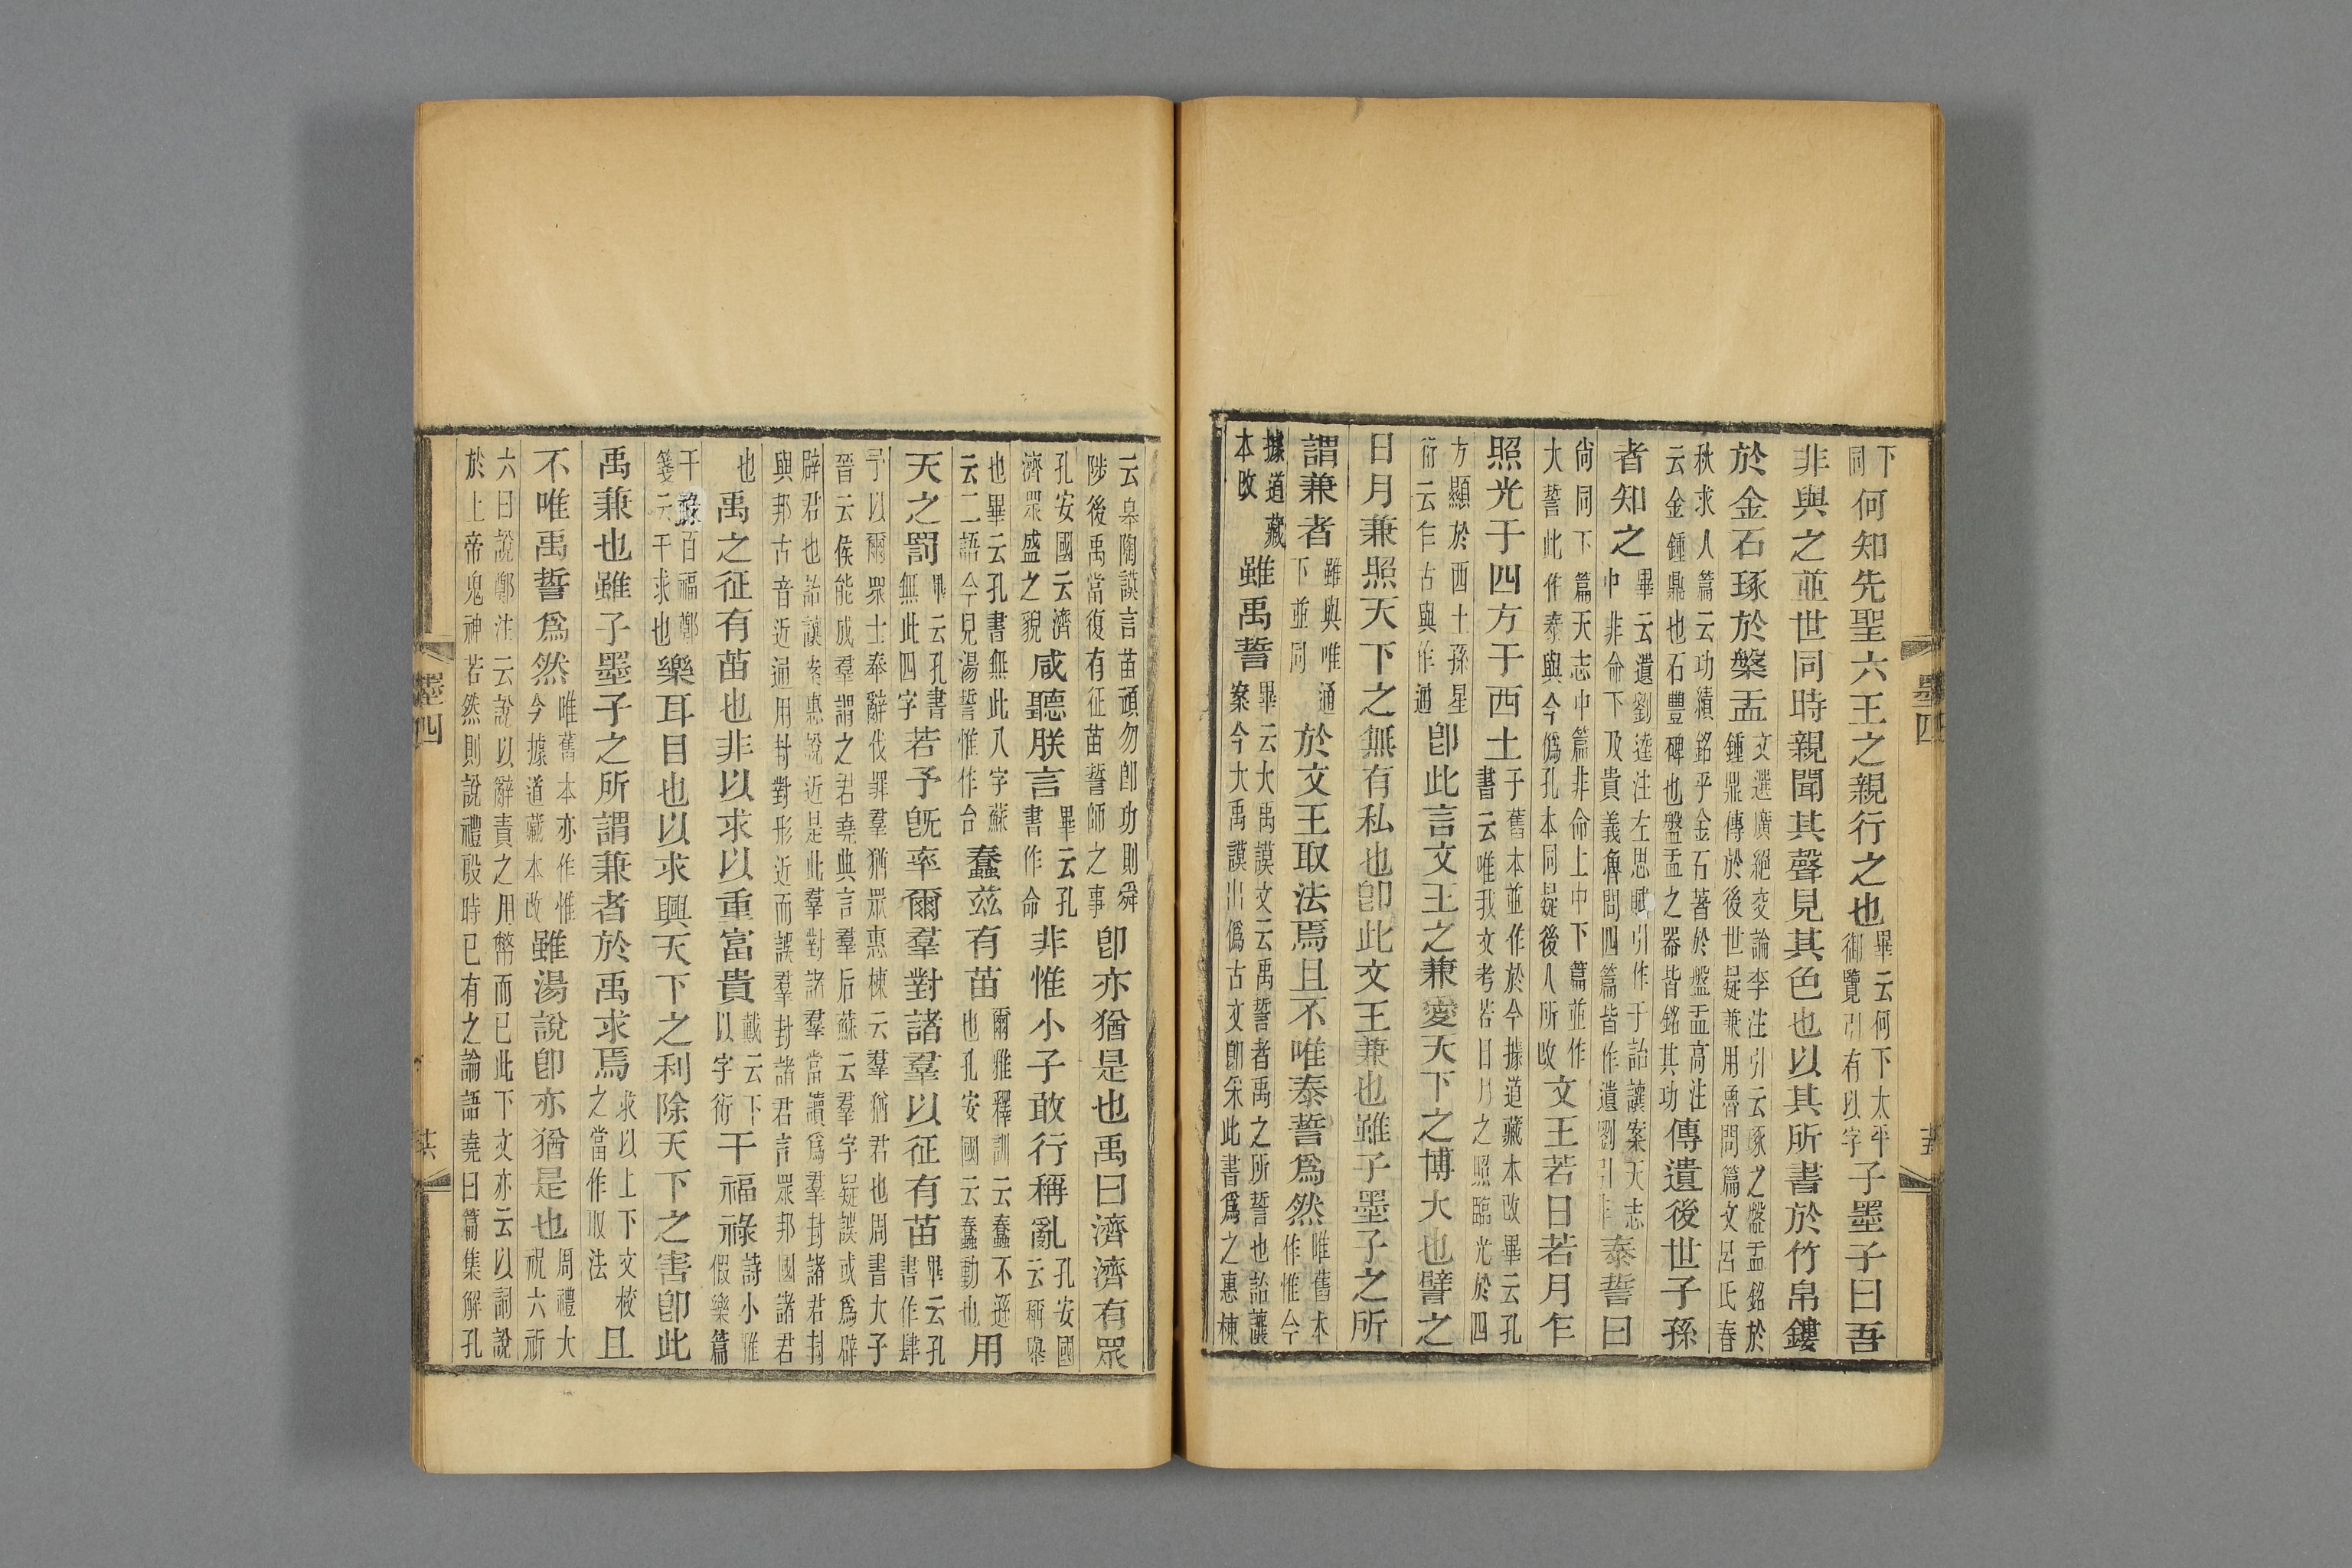 下同何知先聖六王之親行之也畢云何下太平御覽引有以字子墨子曰吾
非與之並世同時親聞其聲見其色也以其所書於竹帛鏤
於金石琢於槃盂文選廣絕交論李注引云琢之盤盂銘於鍾鼎傳於後世疑兼用魯問篇文呂氏春
秋求人篇云功績銘乎金石著於盤盂高注云金鍾鼎也石豐碑也盤盂之器皆銘其功傳遺後世子孫
者知之畢云遺劉逵注左思賦引作于詒讓案天志中非命下及貴義魯問四篇皆作遺劉引非泰誓曰
尙同下篇天志中篇非命上中下篇並作大誓此作泰與今僞孔本同疑後人所改文王若日若月乍
照光于四方于西土于舊本並作於今據道藏本改畢云孔書云唯我文考若日月之照臨光於四
方顯於西土孫星衍云乍古與作通卽此言文王之兼愛天下之博大也譬之
日月兼照天下之無有私也卽此文王兼也雖子墨子之所
謂兼者雖與唯通下並同於文王取法焉且不唯泰誓爲然唯舊本作惟今
據道藏本改雖禹誓畢云大禹謨文云禹誓者禹之所誓也詒讓案今大禹謨出僞古文卽采此書爲之惠棟
墨四
十五
云皋陶謨言苗頑勿卽功則舜陟後禹當復有征苗誓師之事卽亦猶是也禹曰濟濟有眾
孔安國云濟濟眾盛之貌咸聽朕言畢云孔書作命非惟小子敢行稱亂孔安國云稱舉
也畢云孔書無此八字蘇云二語今見湯誓惟作台蠢茲有苗爾雅釋訓云蠢不遜也孔安國云蠢動也用
天之罰畢云孔書無此四字若予旣率爾羣對諸羣以征有苗畢云孔書作肆
予以爾眾士奉辭伐罪羣猶眾惠棟云羣猶君也周書大子晉云侯能成羣謂之君堯典言羣后蘇云羣字疑誤或爲辟
辟君也詒讓案惠說近是此羣對諸羣當讀爲羣封諸君封與邦古音近通用封對形近而誤羣封諸君言眾邦國諸君
也禹之征有苗也非以求以重富貴戴云下以字衍干福祿詩小雅假樂篇
干祿百福鄭箋云干求也樂耳目也以求興天下之利除天下之害卽此
禹兼也雖子墨子之所謂兼者於禹求焉求以上下文校之當作取法且
不唯禹誓爲然唯舊本亦作惟今據道藏本改雖湯說卽亦猶是也周禮大祝六祈
六曰說鄭注云說以辭責之用幣而已此下文亦云以詞說於上帝鬼神若然則說禮殷時已有之論語堯曰篇集解孔
墨四
十六